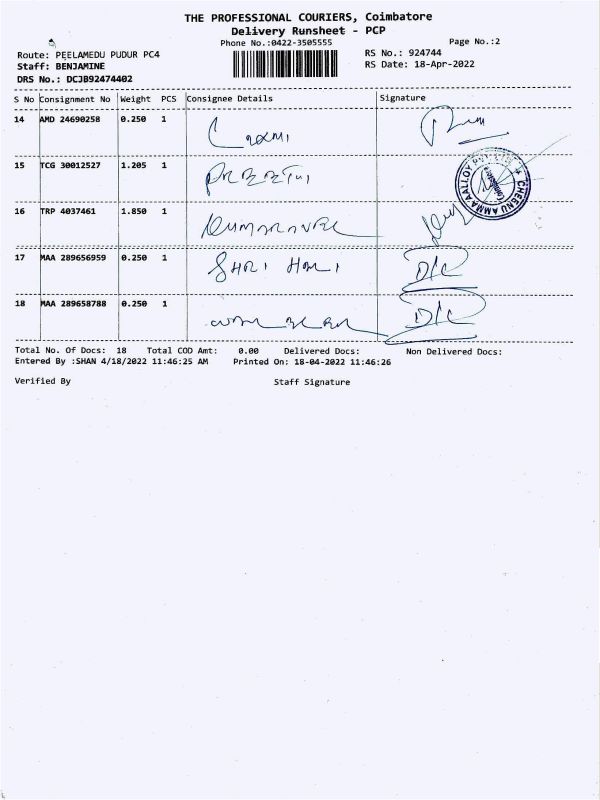 THE PROFESSIONAL COURIERS, Coimbatore
Delivery Runsheet - PCP
Phone No.:0422-3505555 Page No.:2
Route: PEELAMEDU PUDUR PC4 RS No.: 924744
Staff: BENJAMINE RS Date: 18-Apr-2022
DRS No.: DCJB92474402
S No Consignment No Weight PCS Consignee Details Signature
14 AMD 24690258 0.250 1 Laxmi
15 TCG 30012527 1.205 1
16 TRP 4037461 1.850 1
17 MAA 289656959 0.250 1 SHRI HARI D/C
18 MAA 289658788 0.250 1 D/C
CHEENU AMMA AALLOY PVT LTD
Coimbatore
Total No. Of Docs: 18 Total COD Amt: 0.00 Delivered Docs: Non Delivered Docs:
Entered By :SHAN 4/18/2022 11:46:25 AM Printed On: 18-04-2022 11:46:26
Verified By Staff Signature